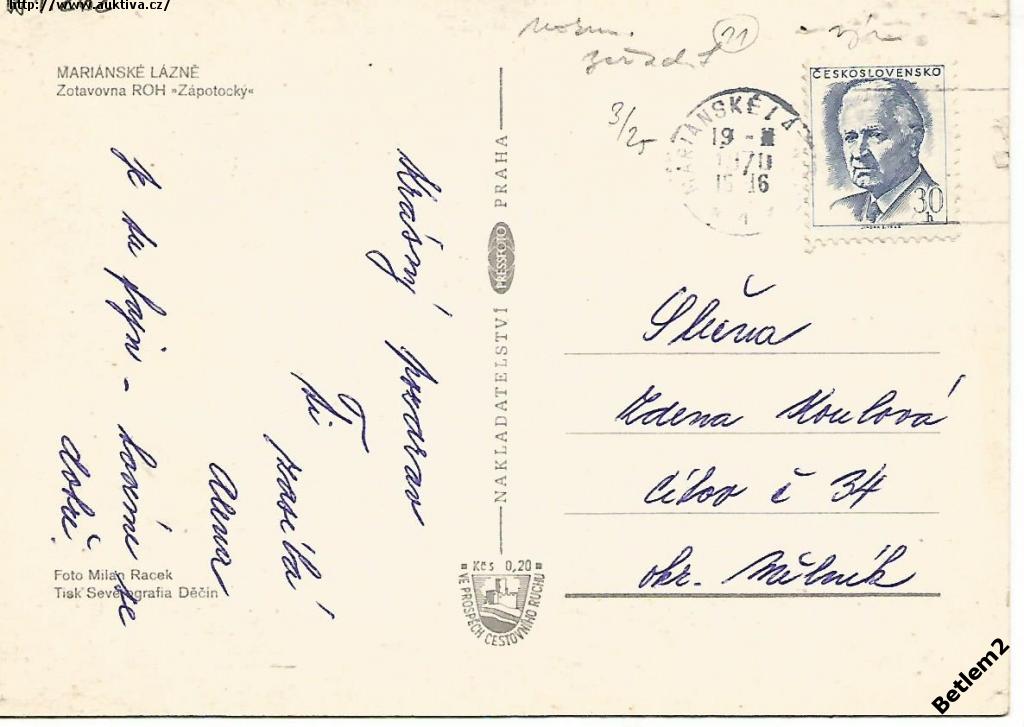 http://www.auktiva.cz/
MARIÁNSKÉ LÁZNĚ
Zotavovna ROH »Zápotocký«
Krásný pozdrav
Ti
posílá
Alena
Je tu fajn – máme se
dobře.
Foto Milan Racek
Tisk Severografia Děčín
NAKLADATELSTVÍ PRESSFOTO PRAHA
Kčs 0,20
VE PROSPĚCH CESTOVNÍHO RUCHU
11
3/25
MARIÁNSKÉ LÁ
19
1970
16
1
ČESKOSLOVENSKO
30 h
Slečna
Zdena Koulová
Cítov č 34
okr. Mělník
Betlem2